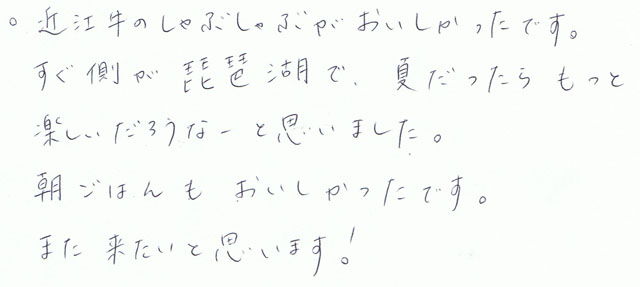 。近江牛のしゃぶしゃぶがおいしかったです。
すぐ側が琵琶湖で、夏だったらもっと
楽しいだろうなーと思いました。
朝ごはんもおいしかったです。
また来たいと思います!